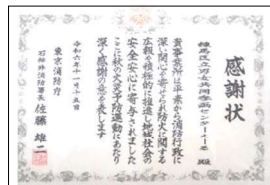 感謝状
練馬区立男女共同参画センターえーる 殿
貴事業所は平素から消防行政に
深い関心を寄せられ防火に関する
広報を積極的に推進し地域社会の
安全安心に寄与されました
ここに秋の火災予防運動にあたり
深く感謝の意を表します
令和六年十一月十五日
東京消防庁
石神井消防署長 佐藤雄二